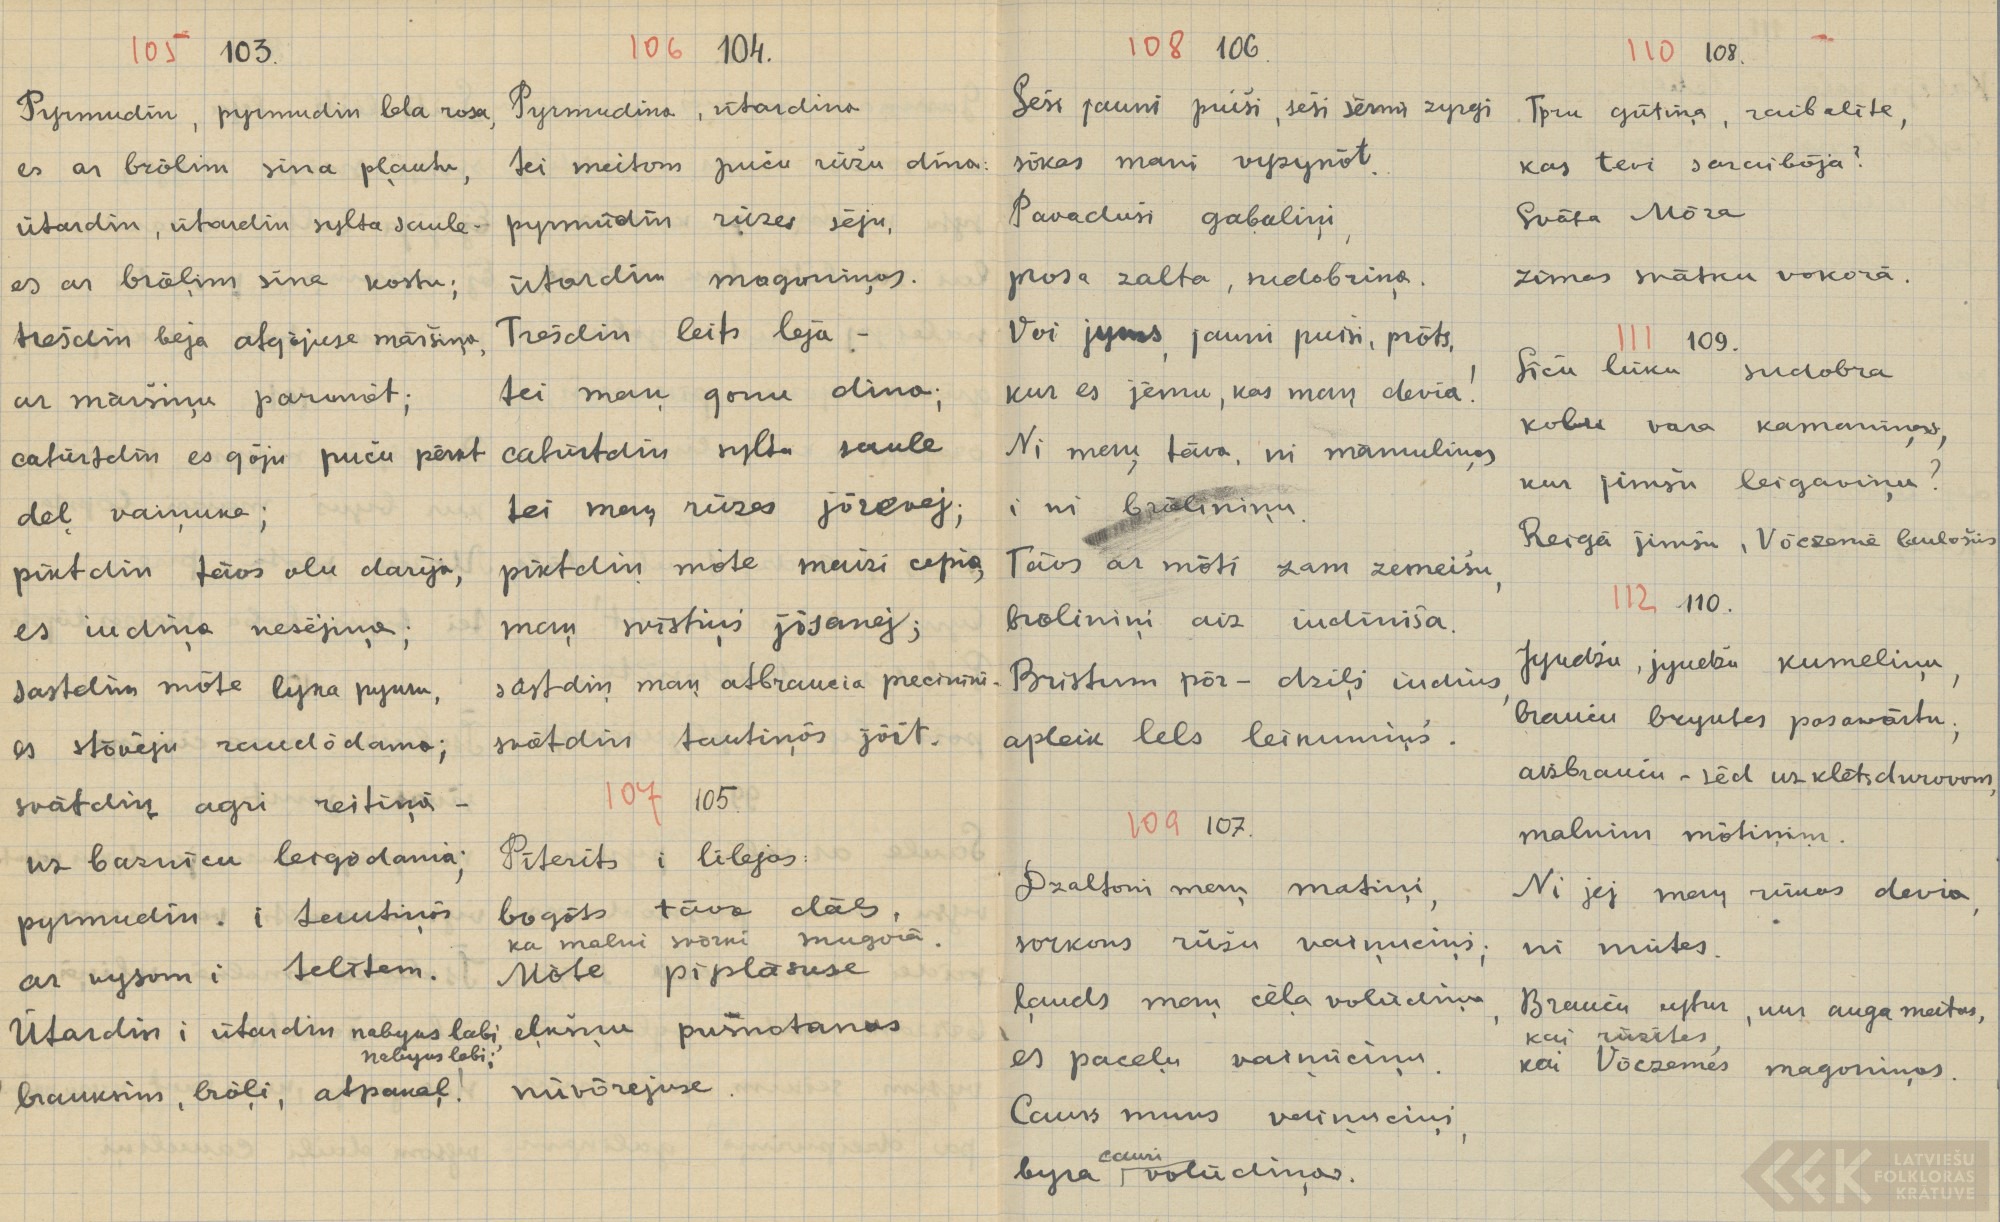 105 103.
Pyrmudin, pyrmudin lela rosa,
es ar brōlim sīna pļautu,
ūtardin, ūtardin sylta saule -
es ar brōļim sīna kostu;
trešdin beja atgōjuse māršiņa,
ar māršiņu parunōt;
catūrtdin es gōju puču pērkt
deļ vaiņuka;
pīktdin tāvs olu darīja,
es iudiņa nesējiņa;
sastdin mōte lyka pyuru,
es stōvēju raudōdama;
svātdiņ agri reitiņā -
uz baznīcu leigōdama;
pyrmudin. i tautiņōs
ar vysom i telītem.
Ūtardin i ūtardin nabyus labi,
nabyus labi;
brauksim, brōļi, atpakaļ!
106 104.
Pyrmudina, ūtardina
tei meitom puču rūžu dīna:
pyrmūdin rūzes sēju,
ūtardin magoniņos.
Trešdin leits leja -
tei maņ gonu dīna;
catūrtdin sylta saule
tei maņ rūzes jōravej;
pīktdiņ mōte maizi cepia,
maņ svīstiņš jōsanej;
sastdiņ maņ atbraucia precinīni -
svātdin tautiņōs jōīt.
107 105
Pīterīts i lilejas:
bogōts tāva dāls,
ka malni svōrki mugorā.
Mōte pīplāsuse
eļkšņu pušnotanas
nūvōrejuse.
108 106.
Seši jauni puiši, seši sērmi zyrgi
sōkas mani vyzynōt.
Pavaduši gabaliņi,
prosa zalta, sudobriņa.
Voi jyms, jauni puiši, prōts,
kur es jēmu, kas maņ devia!
Ni maņ tāva, ni māmuliņas
i ni brōliniņu.
Tāvs ar mōti zam zemeišu,
broliniņi aiz iudiniša.
Bristum pōr - dziļi iudins,
apleik lels leikumiņš.
109 107.
Dzaltoni maņ matiņi,
sorkons rūžu vaiņuciņš;
ļauds maņ cēļa volūdiņa,
es paceļu vaiņūciņu.
Caurs muns vaiņuciņš,
cauri
byra volūdiņas.
110 108.
Tpru gūtiņa, raibalite,
kas tevi saraibōja?
Svāta Mōra
zīmas svātku vokorā.
111 109.
Sīču lūku sudobra
kolu vara kamaniņas,
kur jimšu leigaviņu?
Reigā jimšu, Vōczemē laulošus
112 110.
Jyudžu, jyudžu kumeliņu,
braucu bryutes pasavārtu;
aizbraucu - sēd uz klēts durovom,
malnim mōtiņim.
Ni jej maņ rūkas devia,
ni mutes.
Braucu uztur, kur auga meitas,
kai rūzītes,
kai Vōczemes magoniņas.
LATVIEŠU
FOLKLORAS
KRĀTUVE